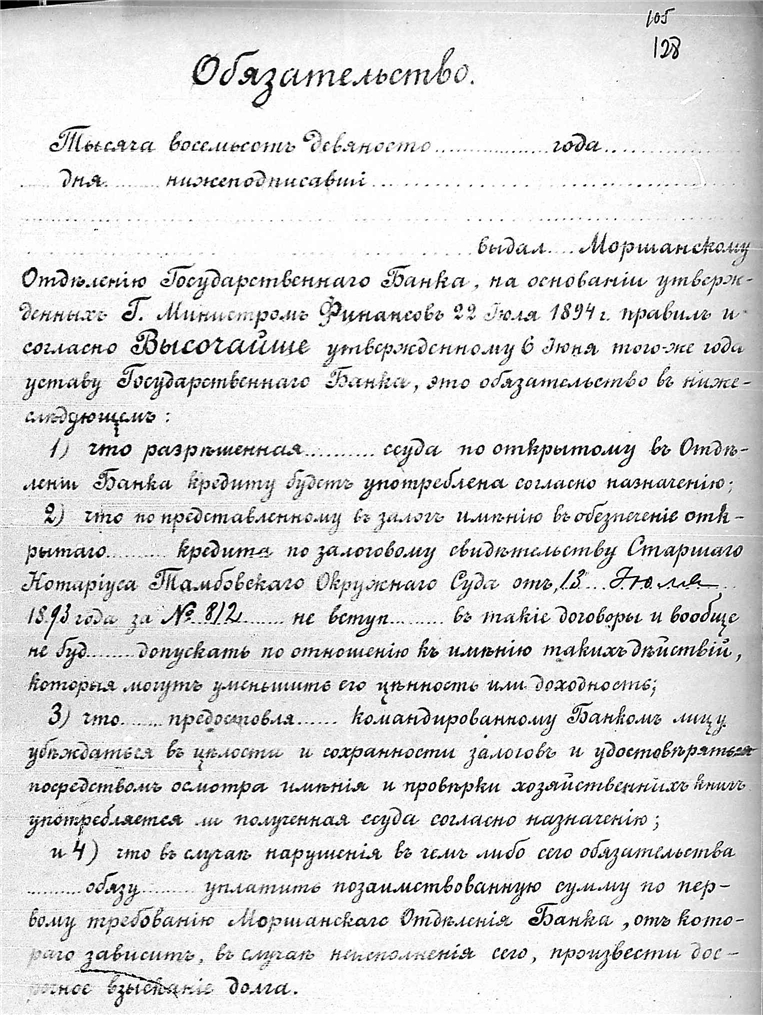 105
128
Обязательство.
Тысяча восемьсотъ девяносто.............. года..............
...дня....... нижеподписавшi.......................................
..........................................................................
...............................................выдал.... Моршанскому
Отдѣленiю Государственнаго Банка, на основанiи утверж-
денныхъ Г. Министромъ Финансовъ 22 Iюля 1894 г. правилъ и
согласно Высочайше утвержденному 6 Iюня того-же года
уставу Государственнаго Банка, это обязательство въ ниже-
слѣдующемъ:
1) что разрѣшенная.......... ссуда по открытому въ Отдѣ-
ленiи Банка кредиту будетъ употреблена согласно назначенiю;
2) что по представленному въ залогъ имѣнiю въ обезпеченiе отк-
рытаго......... кредита по залоговому свидѣтельству Старшаго
Нотарiуса Тамбовскаго Окружнаго Суда отъ 13 Июля
1893 года за № 812....... не вступ........ въ такiе договоры и вообще
не буд....... допускать по отношенiю къ имѣнiю такихъ дѣйствiй,
которыя могутъ уменьшить его цѣнность или доходность;
3) что....... предоставля...... командированному Банкомъ лицу
убѣждаться въ цѣлости и сохранности залоговъ и удостовѣряться
посредствомъ осмотра имѣнiя и провѣрки хозяйственныхъ книгъ
употребляется ли полученная ссуда согласно назначенiю;
и 4) что въ случаѣ нарушенiя въ чемъ либо сего обязательства
.......... обязу....... уплатить позаимствованную сумму по пер-
вому требованiю Моршанскаго Отдѣленiя Банка, отъ кото-
раго зависитъ, въ случаѣ неисполненiя сего, произвести дос-
рочное взысканiе долга.